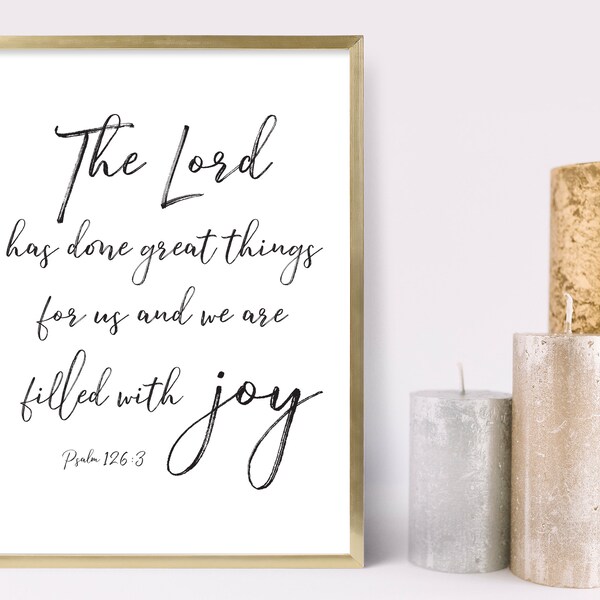 The Lord
has done great things
for us and we are
filled with joy
Psalm 126:3